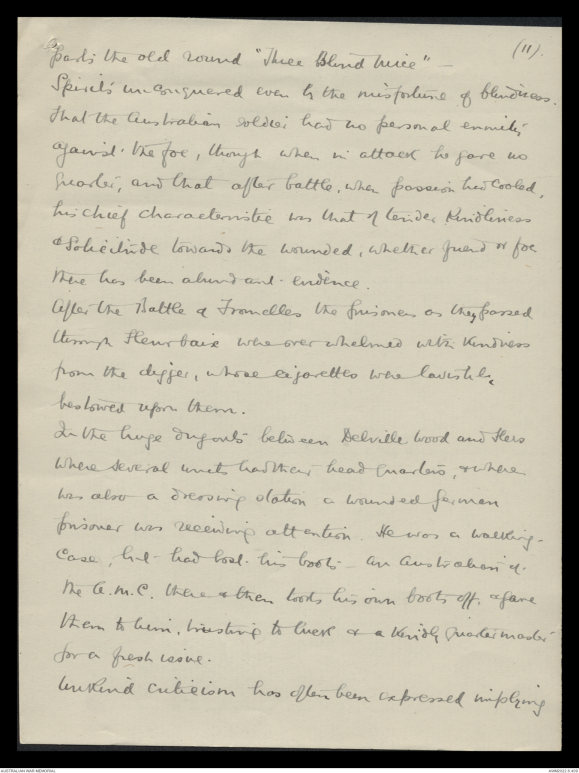 (11).
parts the old round "Three Blind Mice" —
Spirits unconquered even by the misfortune of blindness.
That the Australian soldier had no personal enmity
against the foe, though when in attack he gave no
quarter, and that after battle, when passion had cooled,
his chief characteristic was that of tender kindliness
& solicitude towards the wounded, whether friend or foe
there has been abundant evidence.
After the Battle of Fromelles the prisoners as they passed
through Fleurbaix were overwhelmed with kindness
from the digger, whose cigarettes were lavishly
bestowed upon them.
In the huge dugouts between Delville Wood and Flers
where several units had their head quarters, & where
was also a dressing station a wounded german
prisoner was receiving attention. He was a walking-
case, but had lost his boots — an Australian of
the A.M.C. there & then took his own boots off, & gave
them to him, trusting to luck & a kindly quartermaster
for a fresh issue.
Unkind criticism has often been expressed implying
AUSTRALIAN WAR MEMORIAL